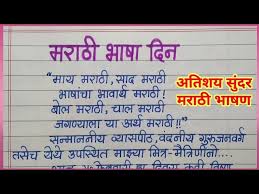 मराठी भाषा दिन
"माय मराठी, साद मराठी
भाषांचा भावार्थ मराठी!
बोल मराठी, चाल मराठी
जगण्याला या अर्थ मराठी!!
सन्माननीय व्यासपीठ, वंदनीय गुरूजनवर्ग
तसेच येथे उपस्थित माझ्या मित्र-मैत्रिणींनो....
अतिशय सुंदर
मराठी भाषण